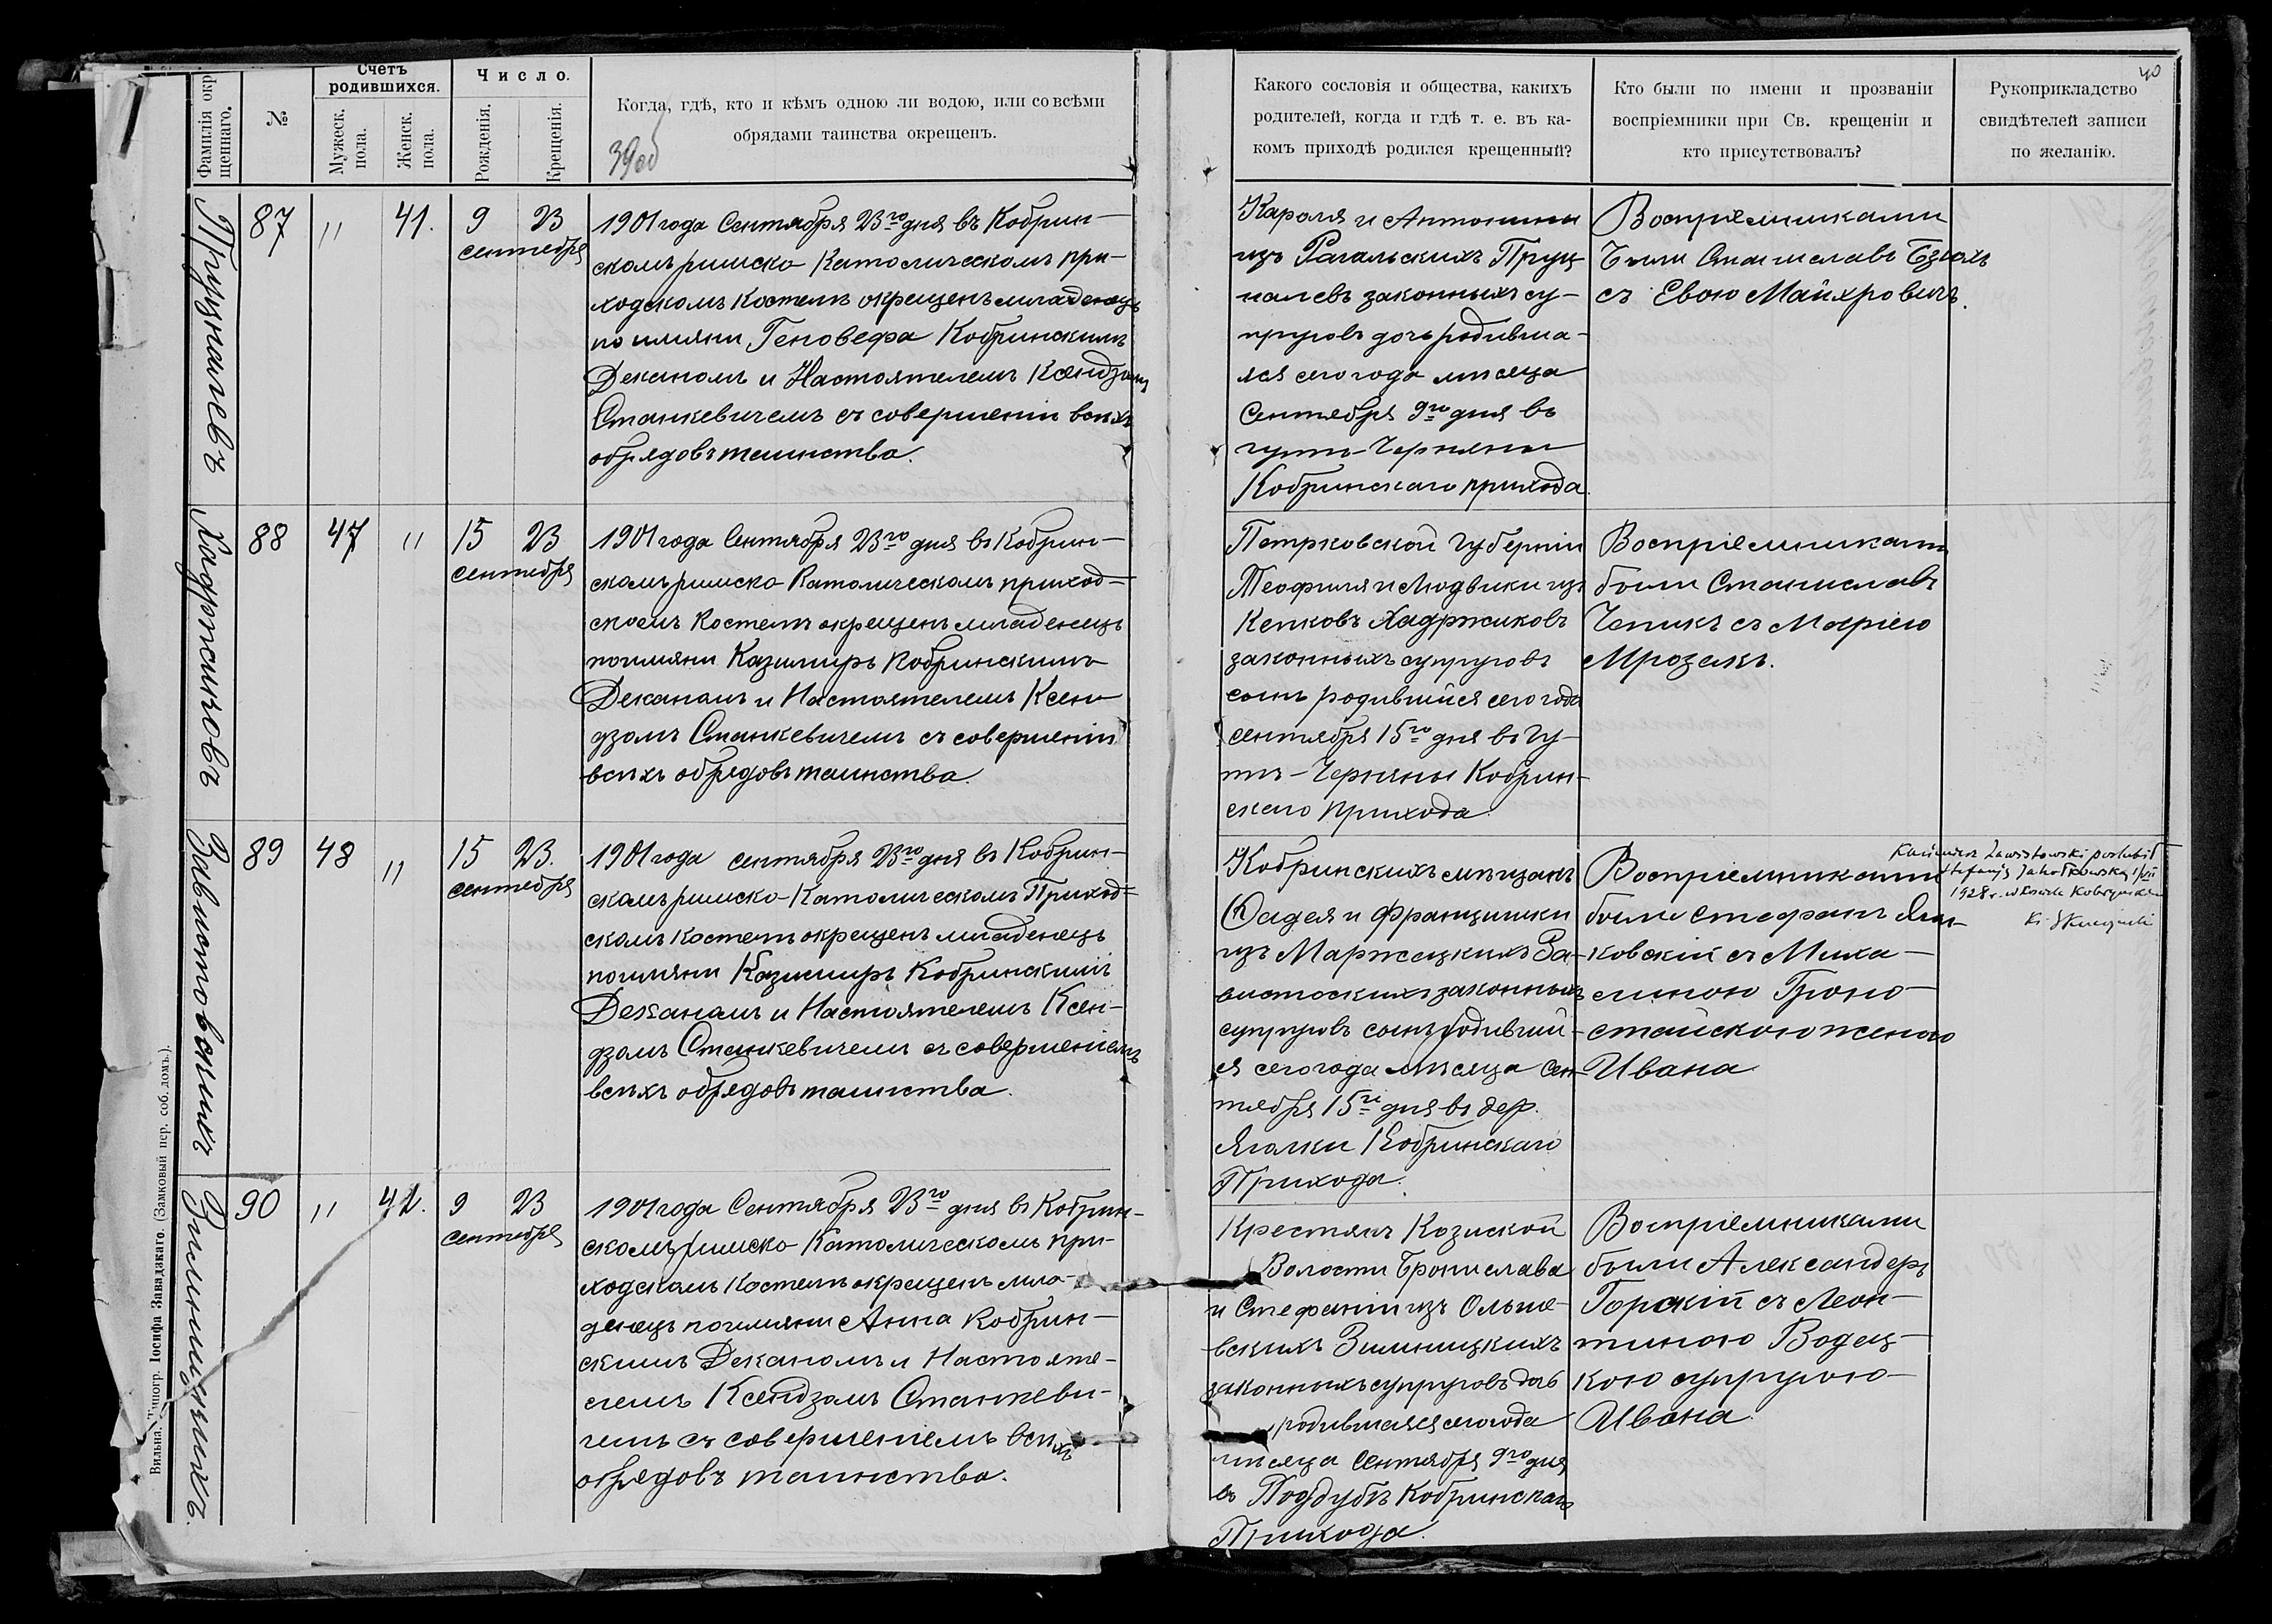 Фамилія окр
щеннаго.
№
Счетъ
родившихся.
Мужеск.
пола.
Женск.
пола.
Число.
Рожденія.
Крещенія.
Когда, гдѣ, кто и кѣмъ одною ли водою, или со всѣми
обрядами таинства окрещенъ.
39об
87
"
41.
9
23
сентября
1901 года Сентября 23го дня въ Кобрин-
скомъ римско Католическомъ при-
ходскомъ Костелѣ окрещенъ младенецъ
по имяни Геновефа Кобринскимъ
Деканомъ и Настоятелемъ Ксендзомъ
Станкевичемъ съ совершеніи всѣхъ
обрядовъ таинства.
Хадржиковъ
88
47
"
15
23
сентября
1901 года Сентября 23го дня въ Кобрин-
скомъ римско Католическомъ приход-
скомъ Костелѣ окрещенъ младенецъ
по имяни Казимиръ Кобринскимъ
Деканомъ и Настоятелемъ Ксен
дзомъ Станкевичемъ съ совершеніи
всѣхъ обрядовъ таинства.
Завистовскихъ
89
48
"
15
23.
сентября
1901 года сентября 23го дня въ Кобрин-
скомъ римско-Католическомъ Приход-
скомъ Костелѣ окрещенъ младенецъ
по имяни Казимиръ Кобринскимъ
Деканомъ и Настоятелемъ Ксен-
дзомъ Станкевичемъ съ совершеніемъ
всѣхъ обрядовъ таинства.
Зимницкихъ.
90
"
42.
9
23
сентября
1901 года Сентября 23го дня въ Кобрин-
скомъ римско Католическомъ при-
ходскомъ Костелѣ окрещенъ мла-
денецъ по имяни Анна Кобрин-
скимъ Деканомъ и Настояте-
лемъ Ксендзомъ Станкеви-
чемъ съ совершеніемъ всѣхъ
обрядовъ таинства.
Вильна. Типогр. Іосифа Завадзкаго. (Замковый пер. соб. домъ.).
40
Какого сословія и общества, какихъ
родителей, когда и гдѣ т. е. въ ка-
комъ приходѣ родился крещенный?
Кто были по имени и прозваніи
воспріемники при Св. крещеніи и
кто присутствовалъ?
Рукоприкладство
свидѣтелей записи
по желанію.
Кароля и Антонины
изъ Рагальскихъ Пруц
налевъ законныхъ су-
пруговъ дочь родивша-
яся сего года мѣсяца
Сентября 9го дня въ
гутѣ-Черняны
Кобринскаго прихода.
Воспріемниками
были Станиславъ
съ Евою Майхровичъ.
Петрковской Губерніи
Теофиля и Людвики изъ
Кепковъ Хадржиковъ
законныхъ супруговъ
сынъ родившійся сего года
сентября 15го дня въ Гу-
тѣ-Черняны Кобрин-
скаго Прихода.
Воспріемниками
были Станиславъ
Чепикъ съ Маріею
Мрозакъ.
Кобринскихъ мѣщанъ
Фадея и Францишки
изъ Маржецкихъ За-
вистоскихъ законныхъ
супруговъ сынъ родивший-
ся сего года мѣсяца Сен-
тября 15го дня въ дер.
Ягалки Кобринскаго
Прихода.
Воспріемниками
были Стефанъ Ян-
ковскій съ Миха-
линою Гроно-
стайскою женою
Ивана
Kazimierz Zawistowski poślubił
Stefanję
1928 r. w Kobryńskim
Крестьянъ Козиской
Волости Бронислава
и Стефаніи изъ Ольше-
вскихъ Зимницкихъ
законныхъ супруговъ дочь
родившаяся сего года
мѣсяца Сентября 9го дня
въ Поддубѣ Кобринскаго
Прихода.
Воспріемниками
были Александеръ
Горскій съ Леон-
тиною Водец-
кою супругою
Ивана.